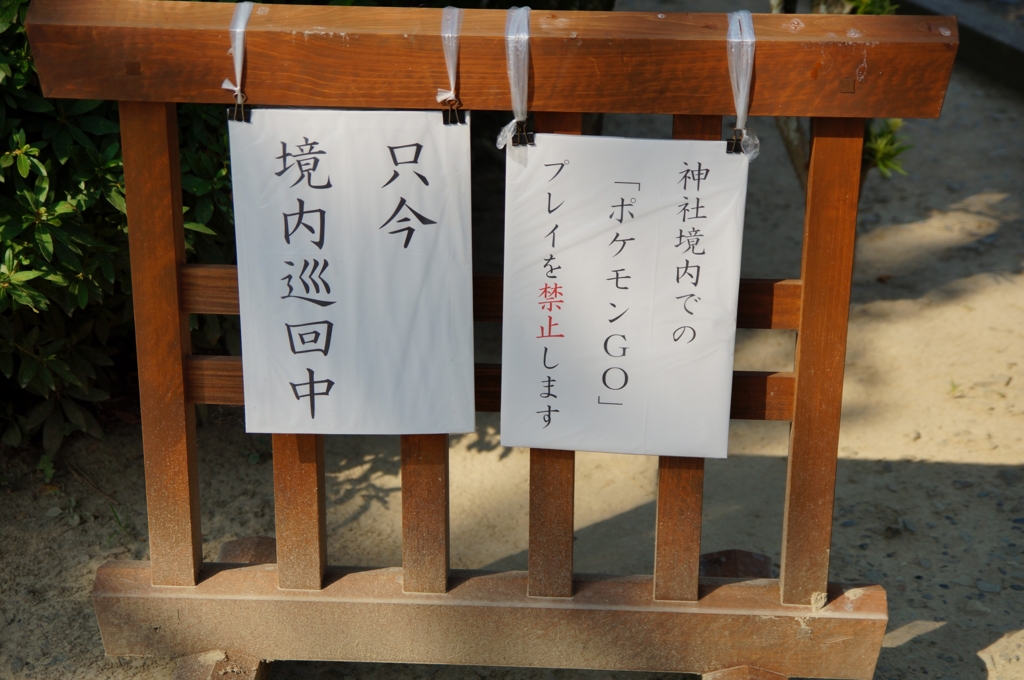 神社境内での
「ポケモンGO」
プレイを禁止します
只今
境内巡回中